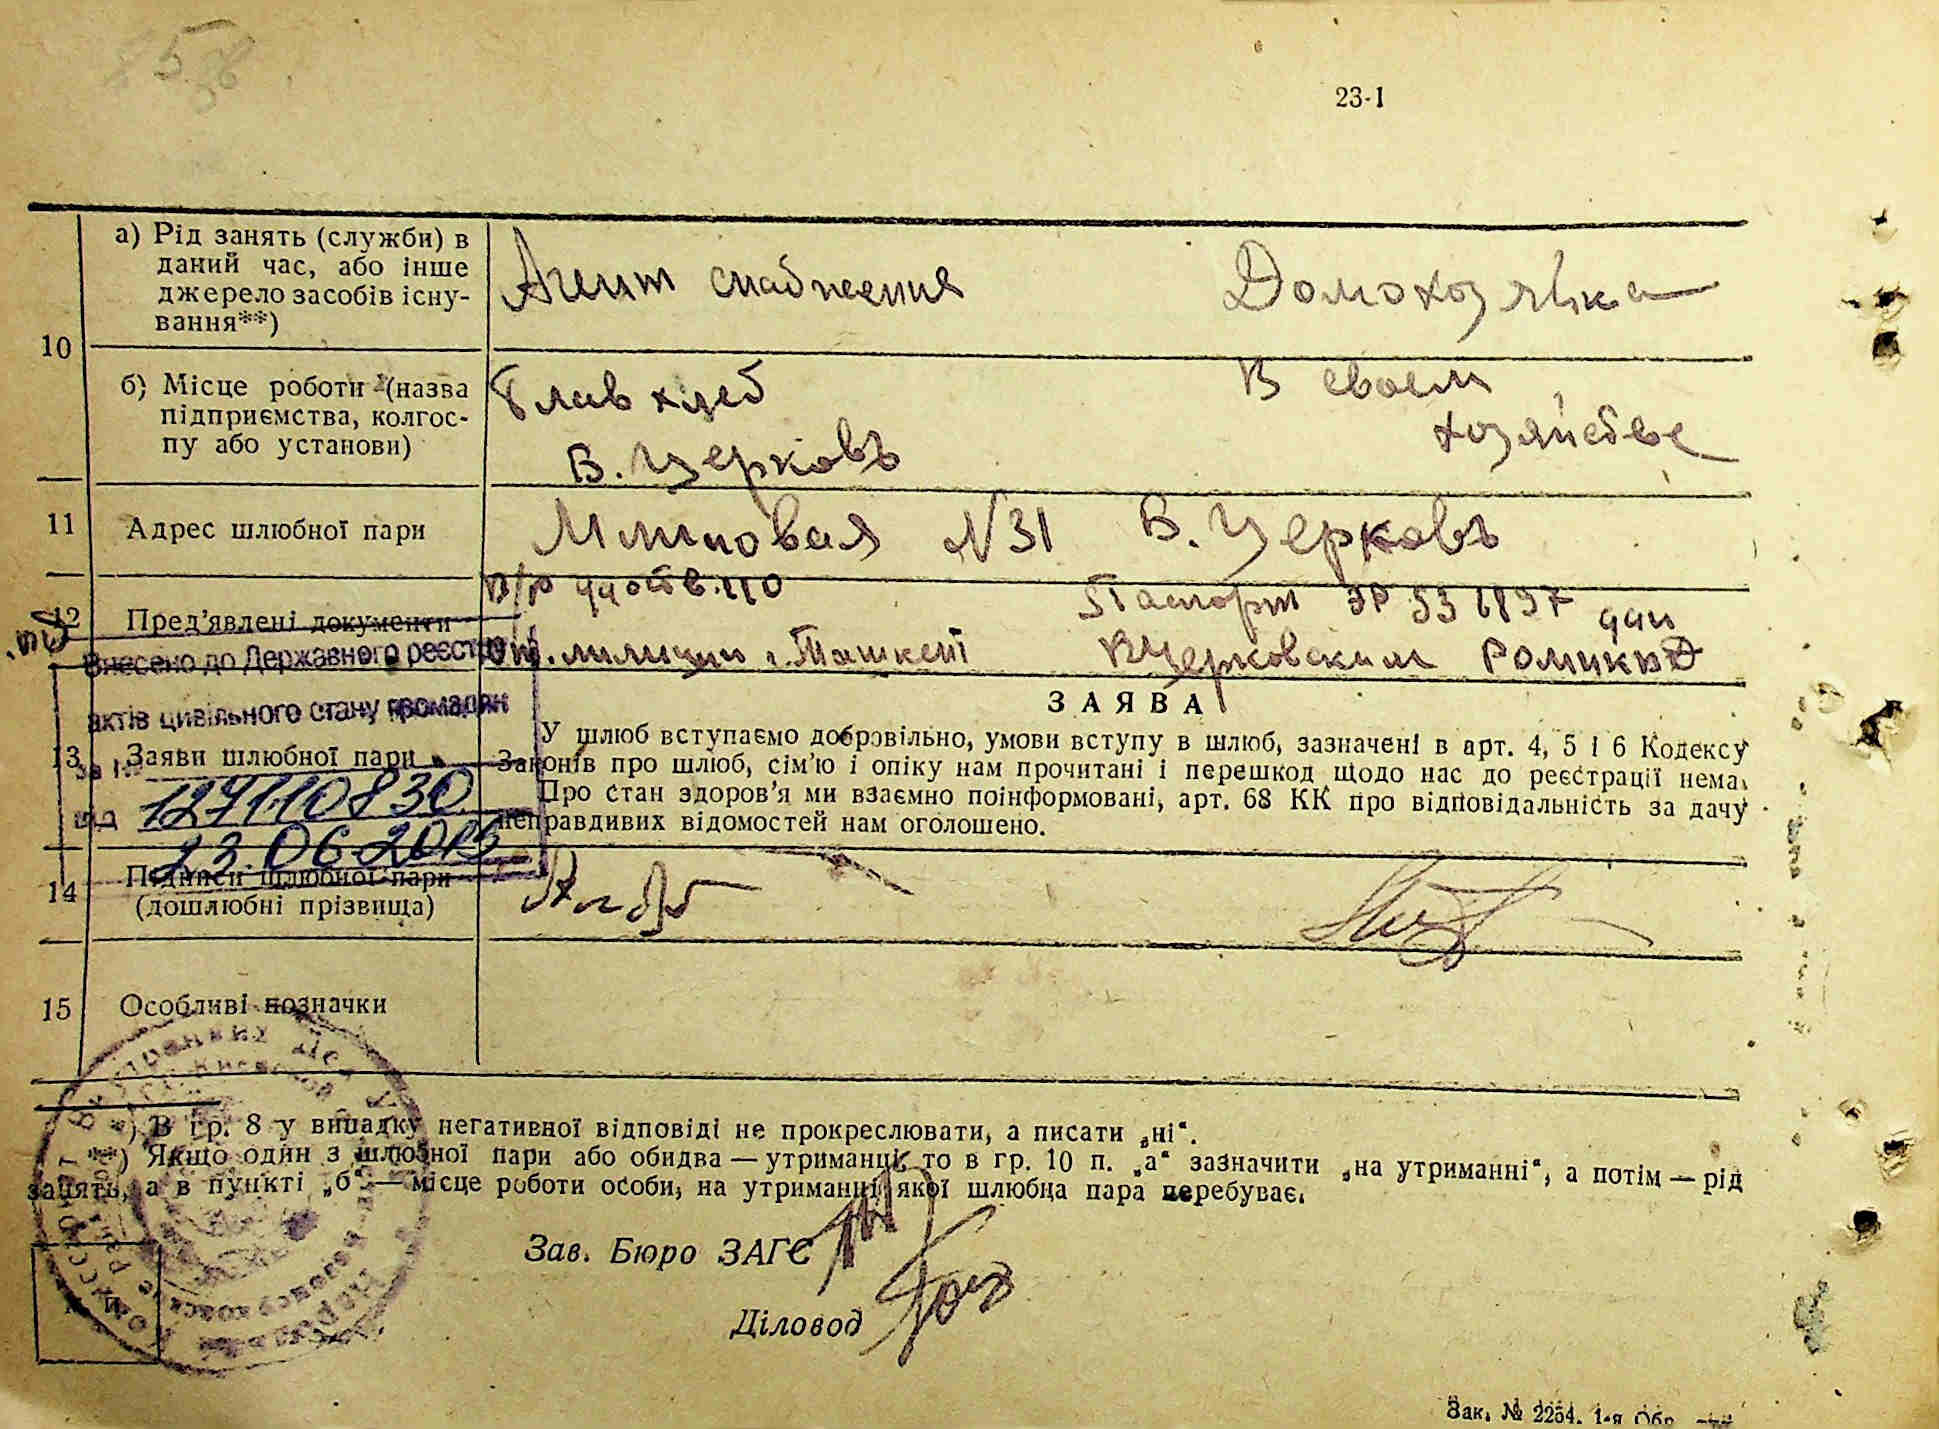 23-1
10
а) Рід занять (служби) в
даний час, або інше
джерело засобів існу-
вання**)
Агент снабжения
Домохозяйка
б) Місце роботи (назва
підприємства, колгос-
пу або установи)
Главхлеб
Б. Церковь
В своем
хозяйстве
11
Адрес шлюбної пари
№31 Б. Церковь
12
Пред'явлені документи
милиции г. Ташкент
Паспорт
Внесено до Державного реєстру
актів цивільного стану громадян
за №
129110830
від
23.06.20
13
Заяви шлюбної пари
ЗАЯВА
У шлюб вступаємо добровільно, умови вступу в шлюб, зазначені в арт. 4, 5 і 6 Кодексу
Законів про шлюб, сім'ю і опіку нам прочитані і перешкод щодо нас до реєстрації нема.
Про стан здоров'я ми взаємно поінформовані, арт. 68 КК про відповідальність за дачу
неправдивих відомостей нам оголошено.
14
Підписи шлюбної пари
(дошлюбні прізвища)
15
Особливі позначки
*) В гр. 8 у випадку негативної відповіді не прокреслювати, а писати „ні“.
**) Якщо один з шлюбної пари або обидва — утриманці, то в гр. 10 п. „а“ зазначити „на утриманні“, а потім — рід
занять, а в пункті „б“ — місце роботи особи, на утриманні якої шлюбна пара перебуває.
Зав. Бюро ЗАГС
Діловод
Зак. № 2254. 1-я Обр.